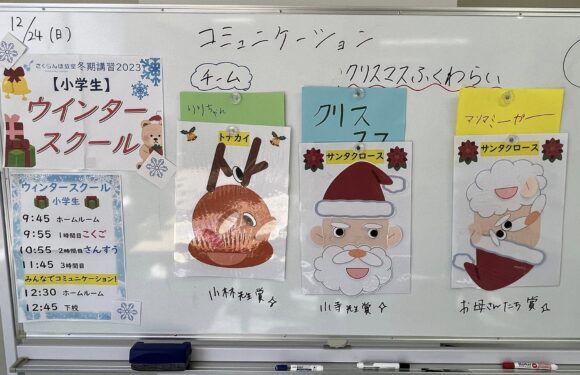 12/24(日)
コミュニケーション
チーム
クリスマスふくわらい
さくらんぼ教室 冬期講習2023
【小学生】
ウインター
スクール
ウィンタースクール
小学生
9:45 ホームルーム
9:55 1時間目 こくご
10:55 2時間目 さんすう
11:45 3時間目
みんなでコミュニケーション!
12:30 ホームルーム
12:45 下校
りりちゃん
トナカイ
小林先生賞☆
クリス
マス
サンタクロース
小寺先生賞☆
マリマミーガー
サンタクロース
お母さんたち賞☆